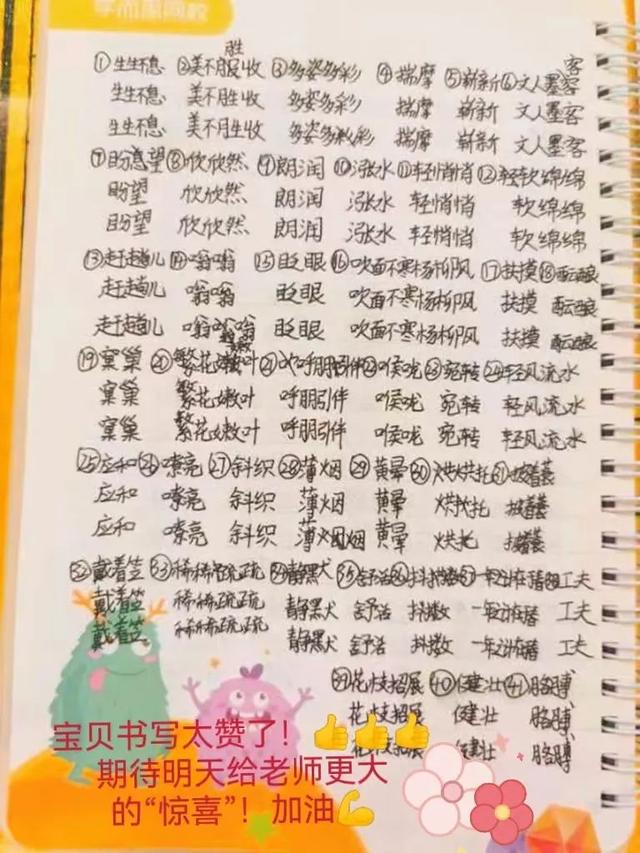 学而思网校
胜
①生生不息 ②美不服收 ③多姿多彩 ④揣摩 ⑤崭新 ⑥文人墨客
生生不息 美不胜收 多姿多彩 揣摩 崭新 文人墨客
生生不息 美不胜收 多姿多彩 揣摩 崭新 文人墨客
⑦盼望 ⑧欣欣然 ⑨朗润 ⑩涨水 ⑪轻悄悄 ⑫轻软绵绵
盼望 欣欣然 朗润 涨水 轻悄悄 软绵绵
盼望 欣欣然 朗润 涨水 轻悄悄 软绵绵
⑬赶趟儿 ⑭嗡嗡 ⑮眨眼 ⑯吹面不寒杨柳风 ⑰扶摸 ⑱酝酿
赶趟儿 嗡嗡 眨眼 吹面不寒杨柳风 扶摸 酝酿
赶趟儿 嗡嗡嗡 眨眼 吹面不寒杨柳风 扶摸 酝酿
⑲窠巢 ⑳繁花嫩叶 ㉑呼朋引伴 ㉒喉咙 ㉓宛转 ㉔轻风流水
窠巢 繁花嫩叶 呼朋引伴 喉咙 宛转 轻风流水
窠巢 繁花嫩叶 呼朋引伴 喉咙 宛转 轻风流水
㉕应和 ㉖嘹亮 ㉗斜织 ㉘薄烟 ㉙黄晕 ㉚烘托 ㉛披着蓑
应和 嘹亮 斜织 薄烟 黄晕 烘托 披着蓑
应和 嘹亮 斜织 薄烟 黄晕 烘托 披着蓑
㉜戴着笠 ㉝稀稀疏疏 ㉞静默 ㉟舒活 ㊱抖擞 工夫
戴着笠 稀稀疏疏 静默 舒活 抖擞 工夫
戴着笠 稀稀疏疏 静默 舒活 抖擞 工夫
㊴花枝招展 ㊵健壮 ㊶胳膊
花枝招展 健壮 胳膊
花枝招展 健壮 胳膊
宝贝书写太赞了！👍👍👍
期待明天给老师更大
的“惊喜”！加油💪